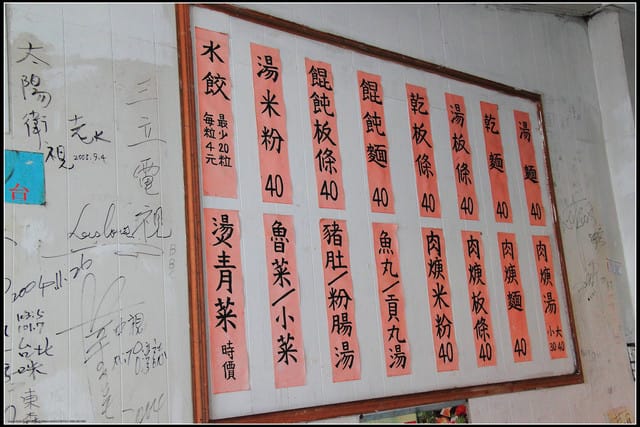 湯麵 40
乾麵 40
湯板條 40
乾板條 40
餛飩麵 40
餛飩板條 40
湯米粉 40
水餃 每粒4元 最少20粒
肉羹湯 小30 大40
肉羹麵 40
肉羹板條 40
肉羹米粉 40
魚丸/貢丸湯
豬肚/粉腸湯
魯菜/小菜
燙青菜 時價
三立電視
太陽衛視
老水
2003.9.4
台
2004.11.26
台北